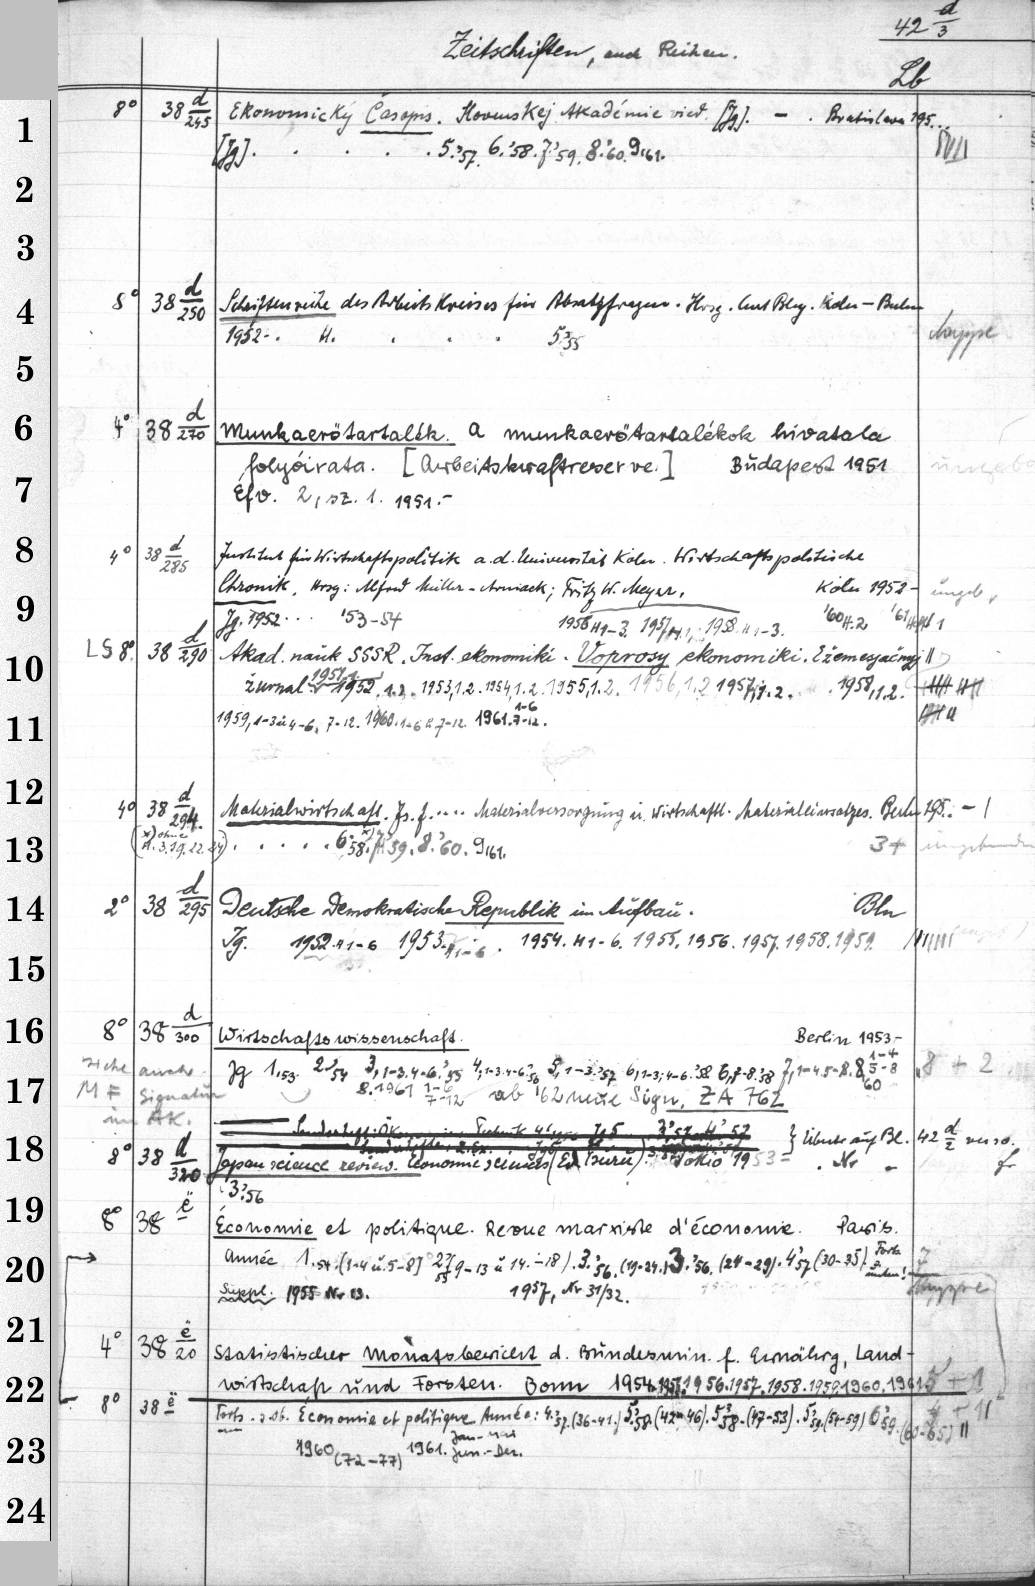 42 d/3
Zeitschriften, und Reihen.
Lb
1 8° 38 d/245 Ekonomický Časopis. Slovenskej Akadémie vied. [Jg]. – . Bratislava 195...
[Jg]. . . . . . 5.'57. 6.'58. 7.'59. 8.'60. 9.'61.
2
3
4 8° 38 d/250 Schriftenreihe des Arbeitskreises für Absatzfragen. Hrsg. Köln – Berlin
1952-. H. . . . 5'55 Mappe
5
6 4° 38 d/270 Munkaerötartalék. A munkaerötartalékok hivatala
folyóirata. [Arbeitskraftreserve.] Budapest 1951
7 Efv. 2, sz. 1. 1951.-
8 4° 38 d/285 Institut für Wirtschaftspolitik a. d. Universität Köln. Wirtschaftspolitische
Chronik. Hrsg: Alfred Müller-Armack; Fritz W. Meyer. Köln 1952- ungeb.
9 Jg. 1952 ... '53-54 1956 H1-3. 1957 1958 H1-3. '60 H.2 '61
10 LS 8° 38 d/290 Akad. nauk SSSR. Inst. ekonomiki. Voprosy ekonomiki. Ežemesjačnyj
žurnal 1951 1952, 1.2. 1953,1.2. 1954,1.2. 1955,1.2. 1956,1.2 1957,1.2. 1958,1.2.
11 1959, 1-3 u 4-6, 7-12. 1960. 1-6 u 7-12. 1961. 1-6 7-12.
12 4° 38 d/294 Materialwirtschaft. Zs. f. .... Materialversorgung u. wirtschaftl. Materialeinsatzes. Berlin 195.. –
13 (x) ohne H. 3.19.22.24) . . . . . 6.'58. 7.'59. 8.'60. 9.'61. 3+ ungebunden
14 2° 38 d/295 Deutsche Demokratische Republik im Aufbau. Bln
Jg. 1952 H1-6 1953. H1-6. 1954. H1-6. 1955. 1956. 1957. 1958. 1959.
15
16 8° 38 d/300 Wirtschaftswissenschaft. Berlin 1953-
siehe auch Jg 1.'53 2'54 3,1-3.4-6.'55 4,1-3.4-6'56 5,1-3.'57 6,1-3,4-6.'58 6,7-8.'58 7,1-4.5-8. 8, 1-4 5-8 '60 8 + 2
17 MF Signatur 8.1961 1-6 7-12 ab '62 neue Sign. ZA 762
im AK.
Sonderheft: Technik
} Übertr. auf Bl. 42 d/2 verso.
18 8° 38 d/320 Japan science review. Economic sciences (Ed. Tsuru). Tokio 1953-
3.'56
19 8° 38 ë/– Économie et politique. Revue marxiste d'économie. Paris.
20 Année 1.'54. (1-4 u. 5-8) 2'55 (9-13 u 14.-18). 3.'56. (19-24.) 3.'56. (24-29). 4'57 (30-35) Forts. s. unten!
Suppl. 1955 Nr 13. 1957, Nr 31/32. Mappe
21 4° 38 ë/20 Statistischer Monatsbericht d. Bundesmin. f. Ernährg, Land-
22 wirtschaft und Forsten. Bonn 1954. 1955. 1956. 1957. 1958. 1959. 1960. 1961. 5 + 1
8° 38 ë Forts. z. ob. Économie et politique Année: 4.'57. (36-41.) 5.'58. (42-46). 5'58. (47-53). 5.'59. (54-59) 6'59. (60-65)
23 1960 (72-77) 1961. Jan.-Mai Jun.-Dez.
24